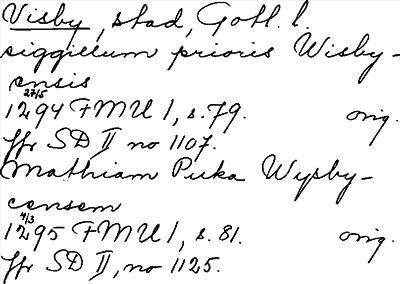 Visby, stad, Gotl. l.
siggillum prioris Wisby-
censis
27/5
1294 FMU 1, s. 79. orig.
jfr SD II no 1107.
Mathiam Puka Wysby-
censem
4/3
1295 FMU 1, s. 81. orig.
jfr SD II, no 1125.